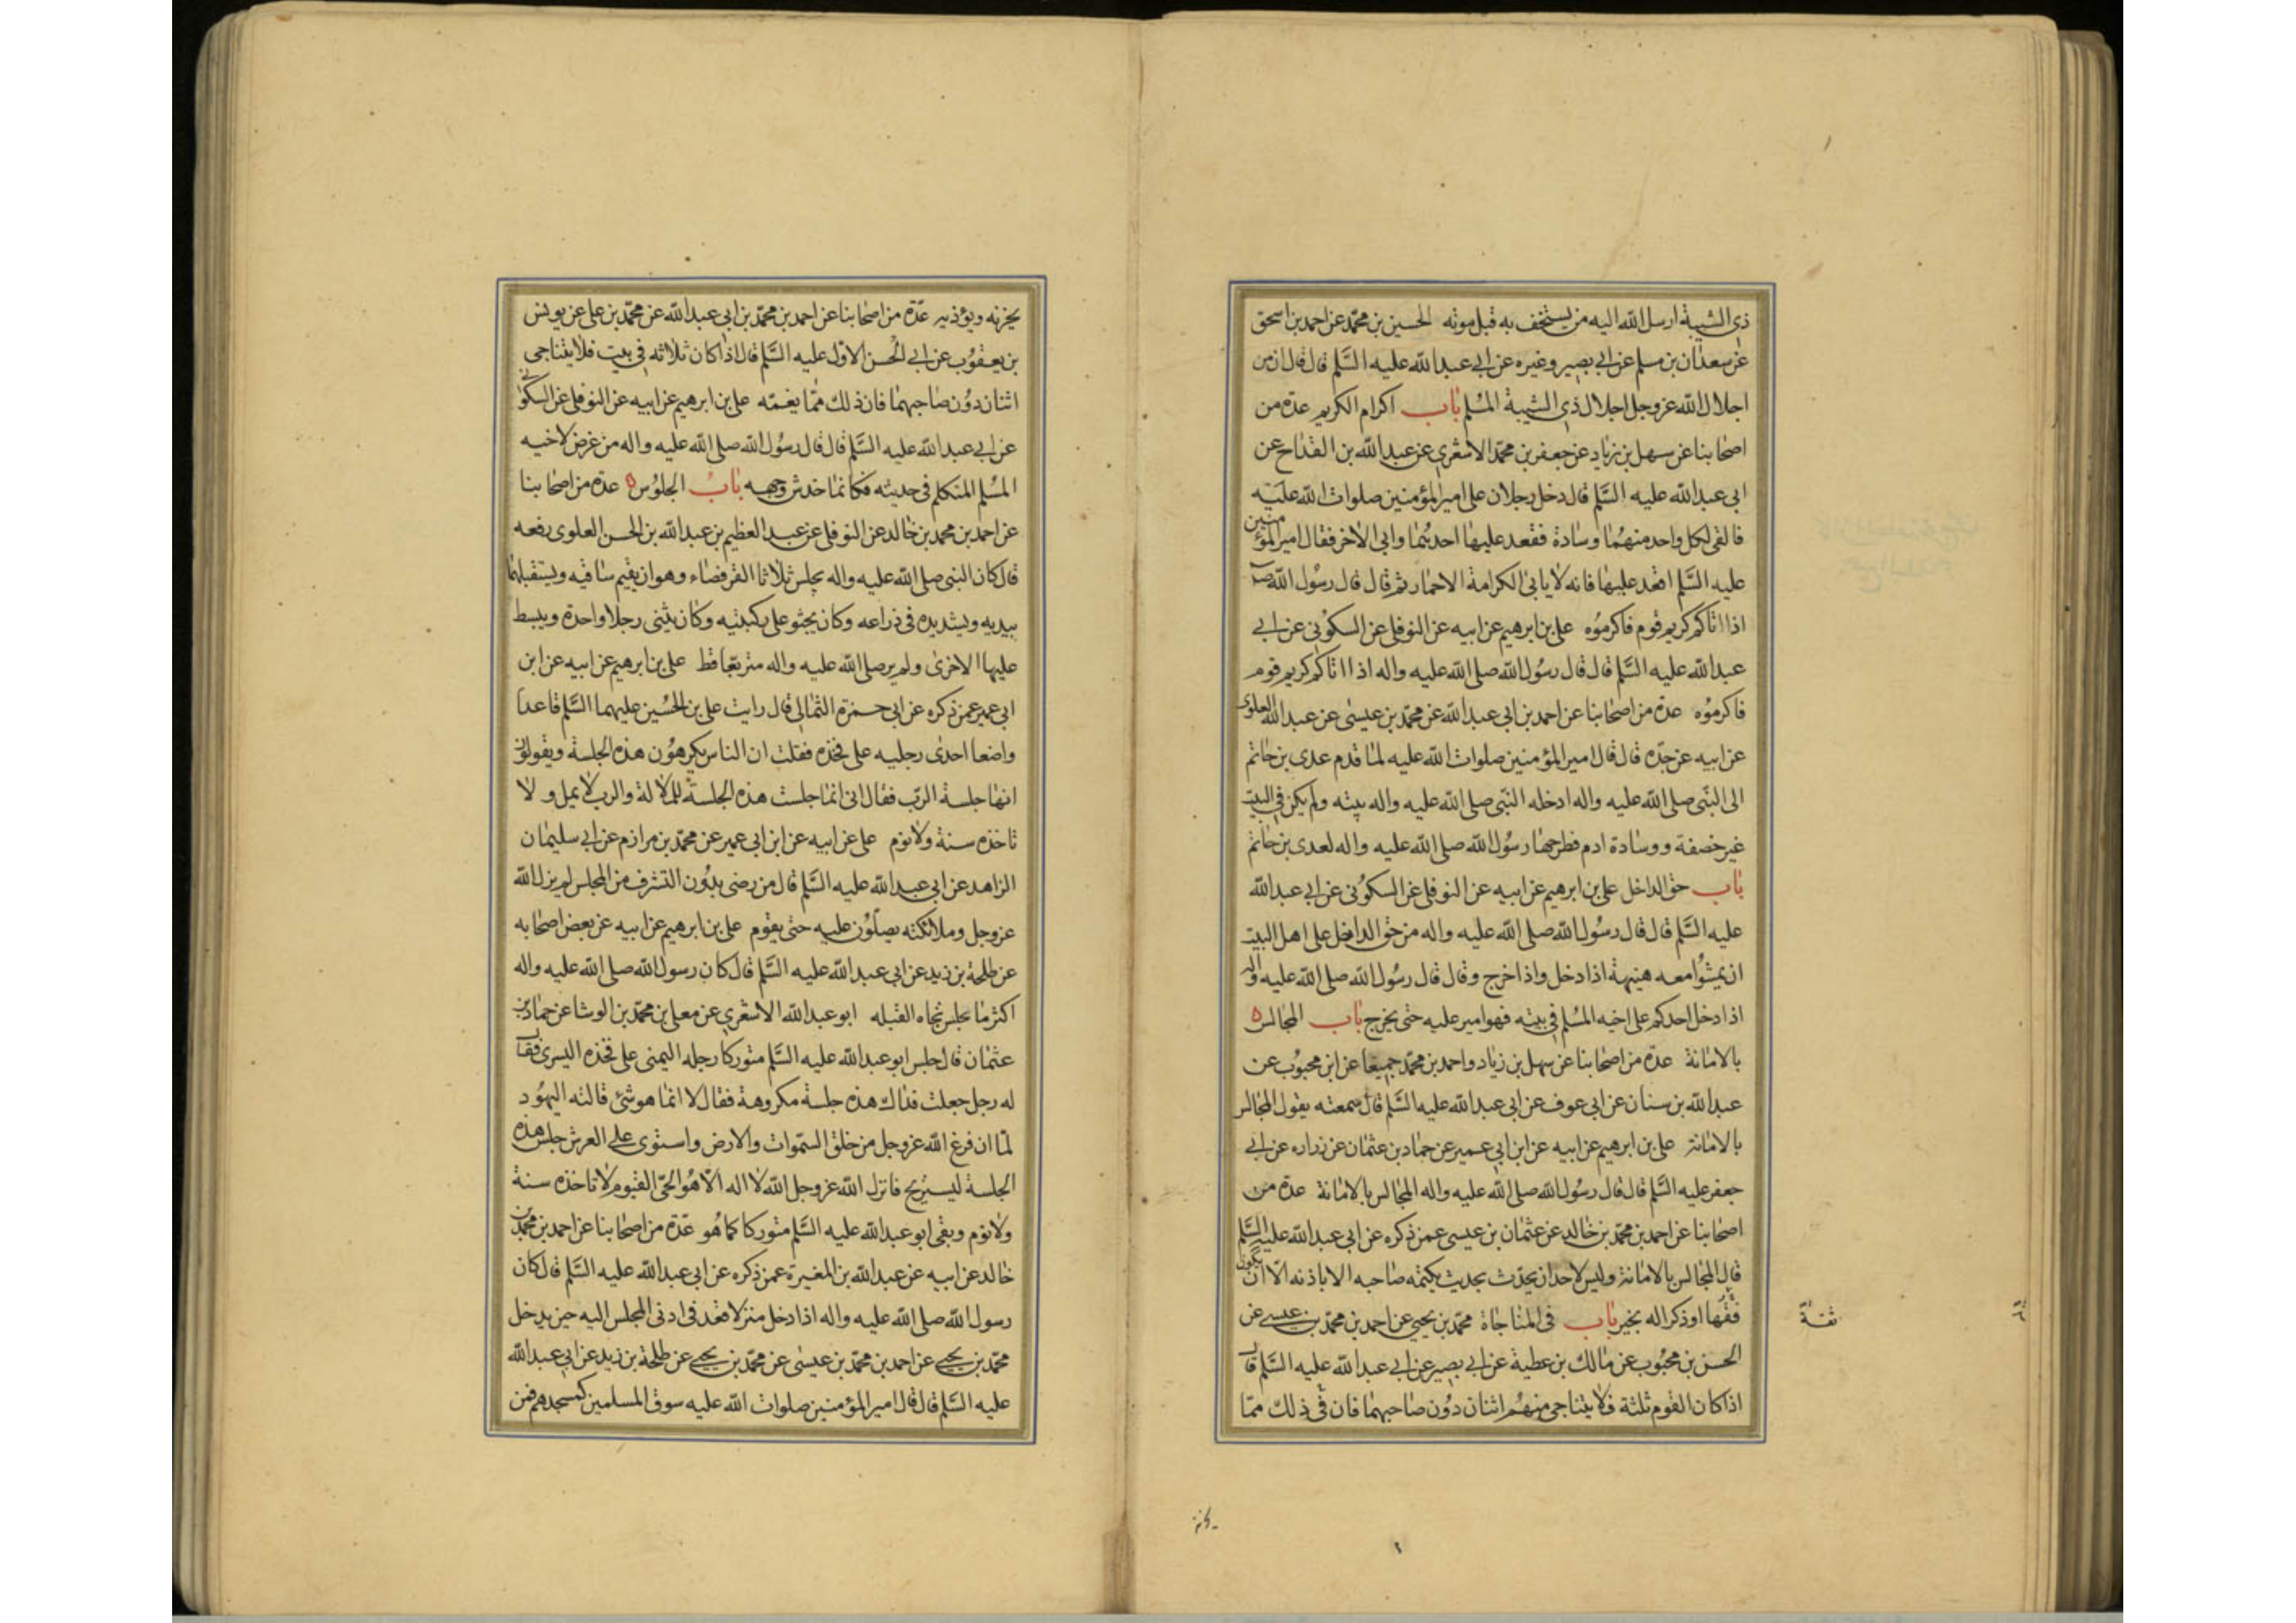 ذي الشيبة ارسل الله اليه من يستخف به قبل موته الحسين بن محمد عن احمد بن اسحق
عن سعدان بن مسلم عن ابي بصير وغيره عن ابي عبد الله عليه السلم قال قال ان من
اجلال الله عز وجل اجلال ذي الشيبة المسلم باب اكرام الكريم عدة من
اصحابنا عن سهل بن زياد عن جعفر بن محمد الاشعري عن عبد الله بن القداح عن
ابي عبد الله عليه السلم قال دخل رجلان على امير المؤمنين صلوات الله عليه
فالقى لكل واحد منهما وسادة فقعد عليها احدهما وابى الاخر فقال امير المؤمنين
عليه السلم اقعد عليها فانه لا يابى الكرامة الا حمار ثم قال قال رسول الله ص
اذا اتاكم كريم قوم فاكرموه علي بن ابرهيم عن ابيه عن النوفلي عن السكوني عن ابي
عبد الله عليه السلم قال قال رسول الله صلى الله عليه واله اذا اتاكم كريم قوم
فاكرموه عدة من اصحابنا عن احمد بن ابي عبد الله عن محمد بن عيسى عن عبد الله العلوي
عن ابيه عن جده قال قال امير المؤمنين صلوات الله عليه لما قدم عدي بن حاتم
الى النبي صلى الله عليه واله ادخله النبي صلى الله عليه واله بيته ولم يكن في البيت
غير خصفة ووسادة ادم فطرحها رسول الله صلى الله عليه واله لعدي بن حاتم
باب حق الداخل علي بن ابرهيم عن ابيه عن النوفلي عن السكوني عن ابي عبد الله
عليه السلم قال قال رسول الله صلى الله عليه واله من حق الداخل على اهل البيت
ان يمشوا معه هنيهة اذا دخل واذا خرج وقال قال رسول الله صلى الله عليه واله
اذا دخل احدكم على اخيه المسلم في بيته فهو امير عليه حتى يخرج باب المجالس
بالامانة عدة من اصحابنا عن سهل بن زياد واحمد بن محمد جميعا عن ابن محبوب عن
عبد الله بن سنان عن ابي عوف عن ابي عبد الله عليه السلم قال سمعته يقول المجالس
بالامانة علي بن ابرهيم عن ابيه عن ابن ابي عمير عن حماد بن عثمان عن زراره عن ابي
جعفر عليه السلم قال قال رسول الله صلى الله عليه واله المجالس بالامانة عدة من
اصحابنا عن احمد بن محمد بن خالد عن عثمان بن عيسى عمن ذكره عن ابي عبد الله عليه السلم
قال المجالس بالامانة وليس لاحد ان يحدث بحديث يكتمه صاحبه الا باذنه الا ان يكون
فقها او ذكرا له بخير باب في المناجاة محمد بن يحيى عن احمد بن محمد بن عيسى عن
ثقة
الحسن بن محبوب عن مالك بن عطية عن ابي بصير عن ابي عبد الله عليه السلم قال
اذا كان القوم ثلثة فلا يتناجى منهم اثنان دون صاحبهما فان في ذلك مما
يحزنه ويؤذيه عدة من اصحابنا عن احمد بن محمد بن ابي عبد الله عن محمد بن علي عن يونس
بن يعقوب عن ابي الحسن الاول عليه السلم قال اذا كان ثلاثه في بيت فلا يتناجى
اثنان دون صاحبهما فان ذلك مما يغمه علي بن ابرهيم عن ابيه عن النوفلي عن السكوني
عن ابي عبد الله عليه السلم قال قال رسول الله صلى الله عليه واله من عرض لاخيه
المسلم المتكلم في حديثه فكانما خدش وجهه باب الجلوس عدة من اصحابنا
عن احمد بن محمد بن خالد عن النوفلي عن عبد العظيم بن عبد الله بن الحسن العلوي رفعه
قال كان النبي صلى الله عليه واله يجلس ثلاثا القرفصاء وهو ان يقيم ساقيه ويستقبلهما
بيديه ويشد يده في ذراعه وكان يجثو على ركبتيه وكان يثنى رجلا واحدة ويبسط
عليها الاخرى ولم ير صلى الله عليه واله متربعا قط علي بن ابرهيم عن ابيه عن ابن
ابي عمير عمن ذكره عن ابي حمزة الثمالي قال رايت علي بن الحسين عليهما السلم قاعدا
واضعا احدى رجليه على فخذه فقلت ان الناس يكرهون هذه الجلسة ويقولون
انها جلسة الرب فقال اني انما جلست هذه الجلسة للملالة والرب لا يمل ولا
تاخذه سنة ولا نوم علي عن ابيه عن ابن ابي عمير عن محمد بن مرازم عن ابي سليمان
الزاهد عن ابي عبد الله عليه السلم قال من رضى بدون التشرف من المجلس لم يزل الله
عز وجل وملائكته يصلون عليه حتى يقوم علي بن ابرهيم عن ابيه عن بعض اصحابه
عن طلحة بن زيد عن ابي عبد الله عليه السلم قال كان رسول الله صلى الله عليه واله
اكثر ما يجلس تجاه القبله ابو عبد الله الاشعري عن معلى بن محمد بن الوشا عن حماد بن
عثمان قال جلس ابو عبد الله عليه السلم متوركا رجله اليمنى على فخذه اليسرى فقال
له رجل جعلت فداك هذه جلسة مكروهة فقال لا انما هو شئ قالته اليهود
لما ان فرغ الله عز وجل من خلق السموات والارض واستوى على العرش جلس هذه
الجلسة ليستريح فانزل الله عز وجل الله لا اله الا هو الحي القيوم لا تاخذه سنة
ولا نوم وبقى ابو عبد الله عليه السلم متوركا كما هو عدة من اصحابنا عن احمد بن محمد بن
خالد عن ابيه عن عبد الله بن المغيرة عمن ذكره عن ابي عبد الله عليه السلم قال كان
رسول الله صلى الله عليه واله اذا دخل منزلا قعد في ادنى المجلس اليه حين يدخل
محمد بن يحيى عن احمد بن محمد بن عيسى عن محمد بن يحيى عن طلحة بن زيد عن ابي عبد الله
عليه السلم قال قال امير المؤمنين صلوات الله عليه سوق المسلمين كمسجدهم فمن